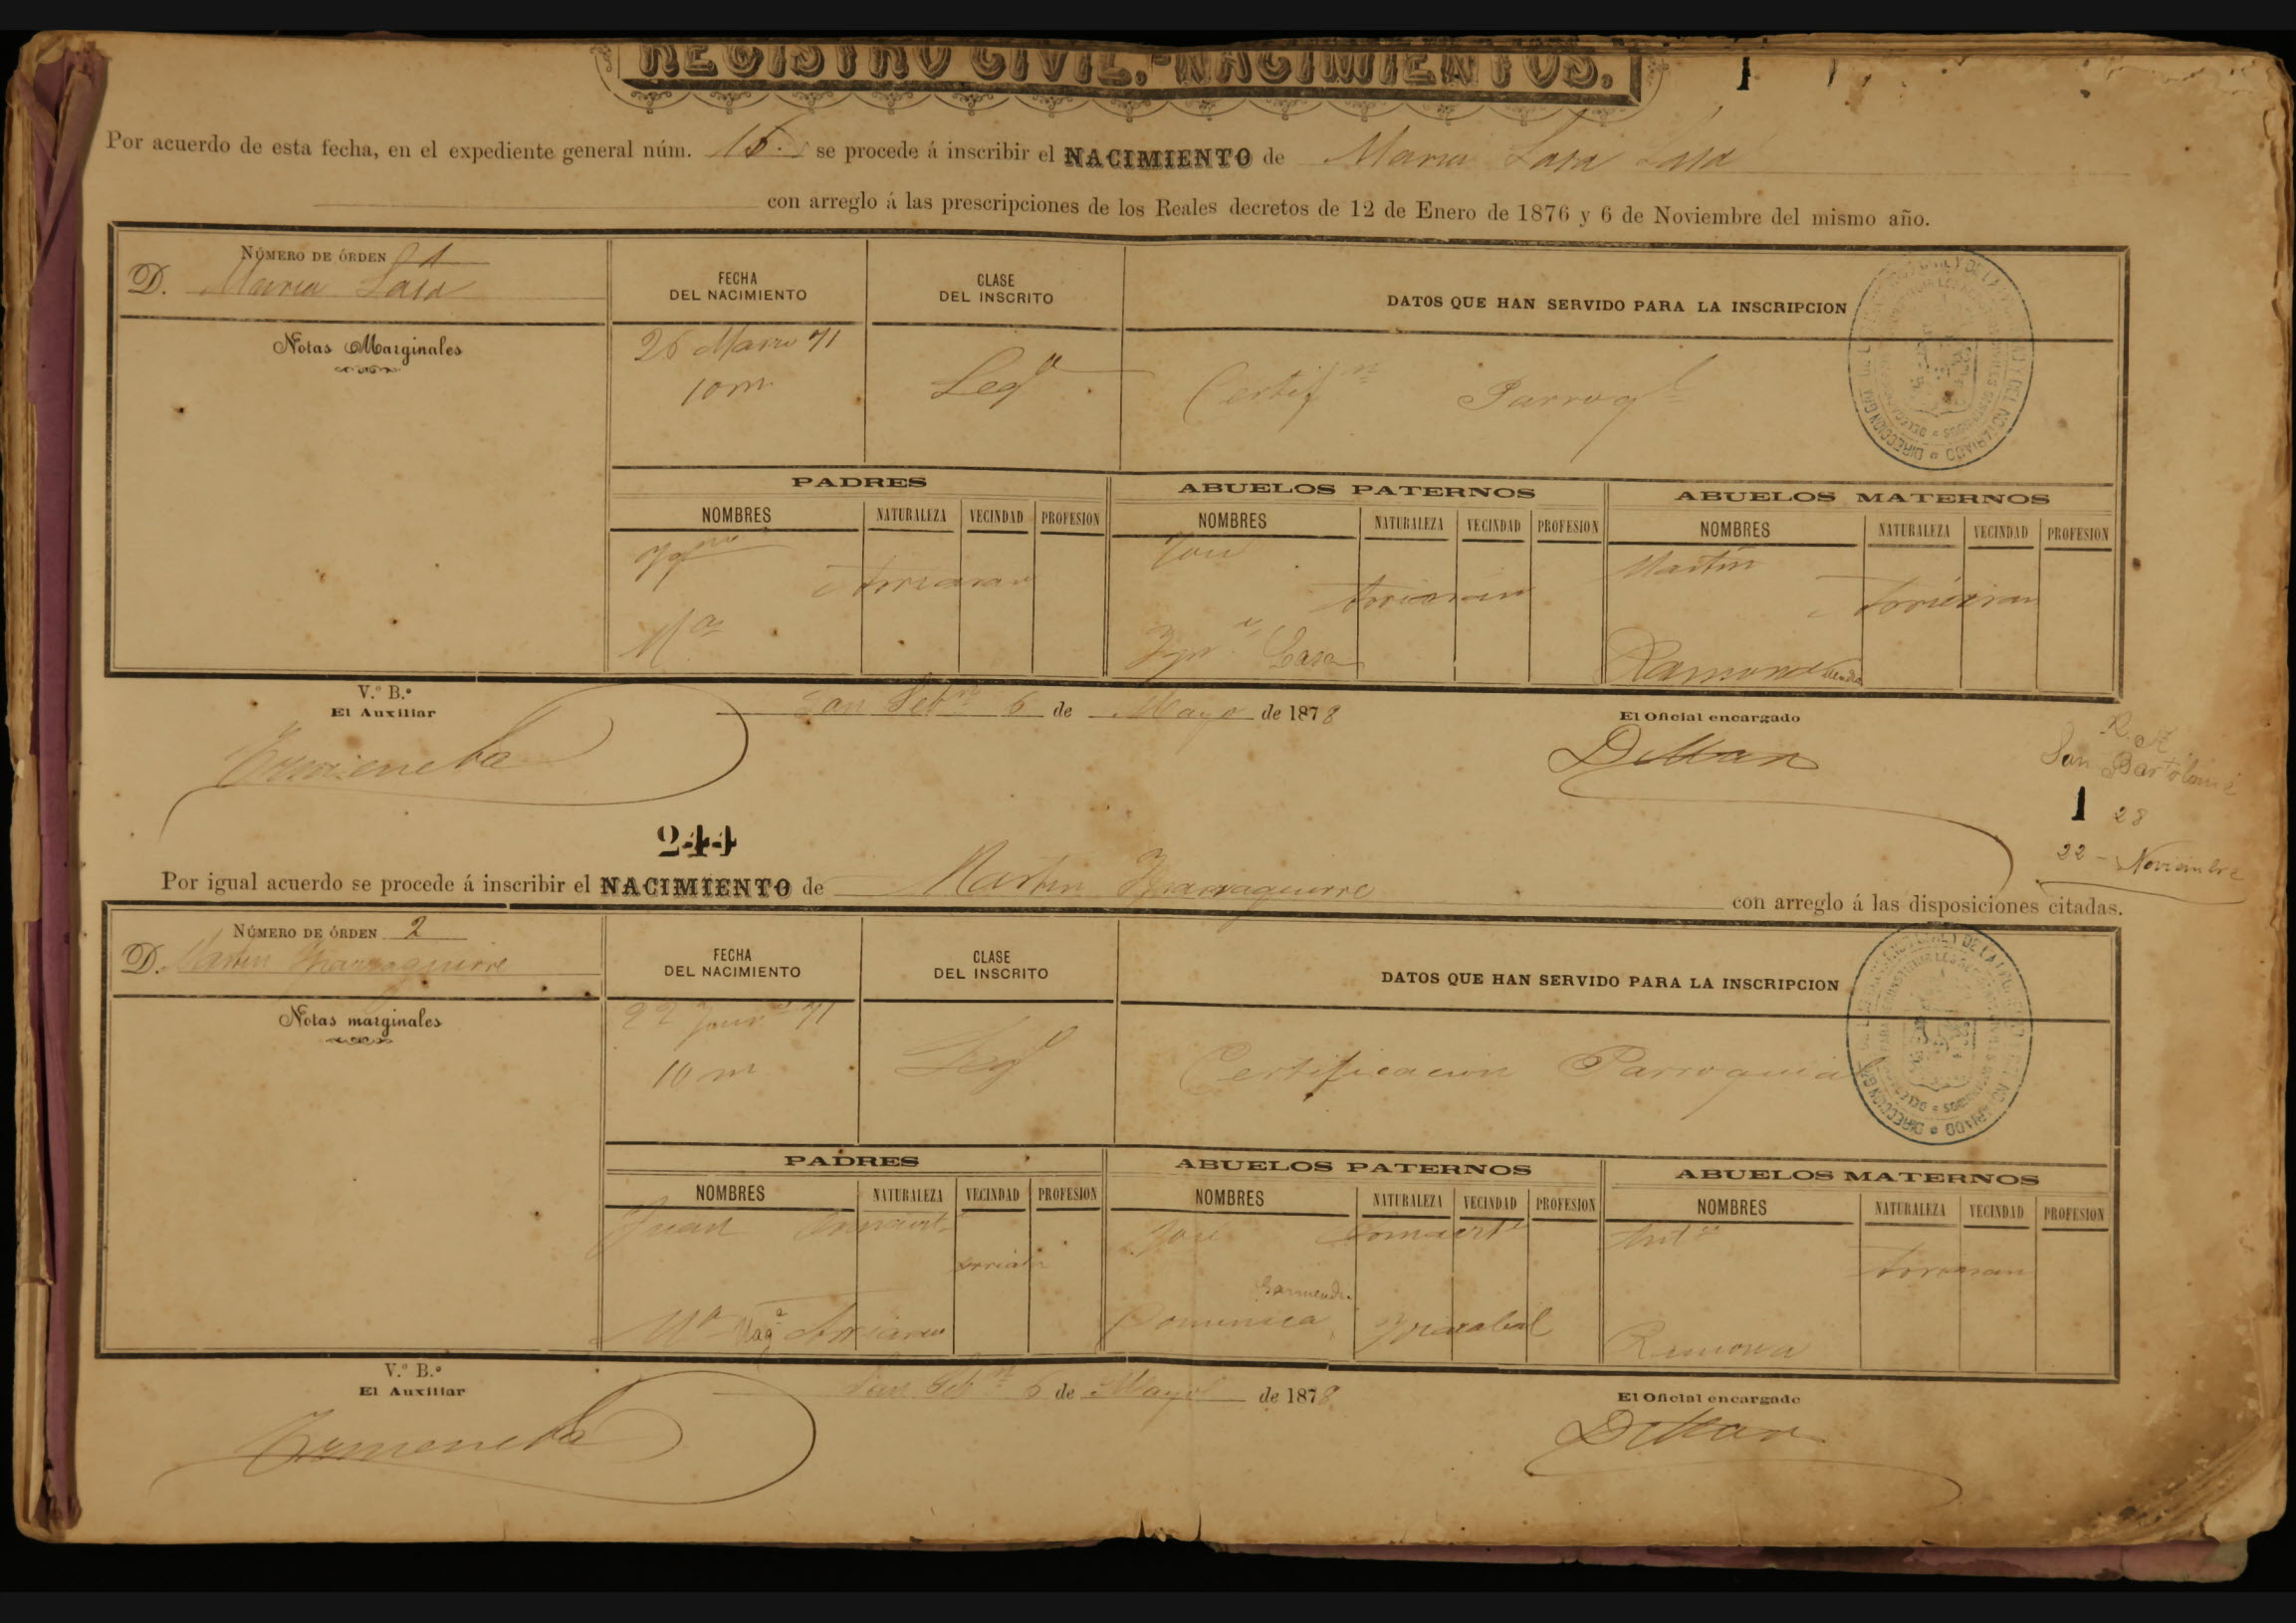 REGISTRO CIVIL.-NACIMIENTOS. 1
Por acuerdo de esta fecha, en el expediente general núm. 15. se procede á inscribir el NACIMIENTO de Maria Lasa Lasa
con arreglo á las prescripciones de los Reales decretos de 12 de Enero de 1876 y 6 de Noviembre del mismo año.
NÚMERO DE ÓRDEN 1
D. Maria Lasa
FECHA DEL NACIMIENTO
CLASE DEL INSCRITO
DATOS QUE HAN SERVIDO PARA LA INSCRIPCION
Notas Marginales
26 Marzo 71
10 m
Legª
Certifn Parroql
PADRES
ABUELOS PATERNOS
ABUELOS MATERNOS
NOMBRES NATURALEZA VECINDAD PROFESION
NOMBRES NATURALEZA VECINDAD PROFESION
NOMBRES NATURALEZA VECINDAD PROFESION
Ygnº Arriaran
José Arriaran
Martin Arriaran
Mª
Lasa
Ramona
V.º B.º
El Auxiliar
San Sebn 6 de Mayo de 1878
El Oficial encargado
San Bartolomé
1 28
22 - Noviembre
244
Por igual acuerdo se procede á inscribir el NACIMIENTO de Martin con arreglo á las disposiciones citadas.
NÚMERO DE ÓRDEN 2
D. Martin
FECHA DEL NACIMIENTO
CLASE DEL INSCRITO
DATOS QUE HAN SERVIDO PARA LA INSCRIPCION
Notas marginales
22 71
10 m
Legl
Certificacion Parroquial
PADRES
ABUELOS PATERNOS
ABUELOS MATERNOS
NOMBRES NATURALEZA VECINDAD PROFESION
NOMBRES NATURALEZA VECINDAD PROFESION
NOMBRES NATURALEZA VECINDAD PROFESION
Juan
José
Antº
Arriaran
Mª Magª Arriaran
Dominica
Ramona
V.º B.º
El Auxiliar
San Sebn 6 de Mayo de 1878
El Oficial encargado